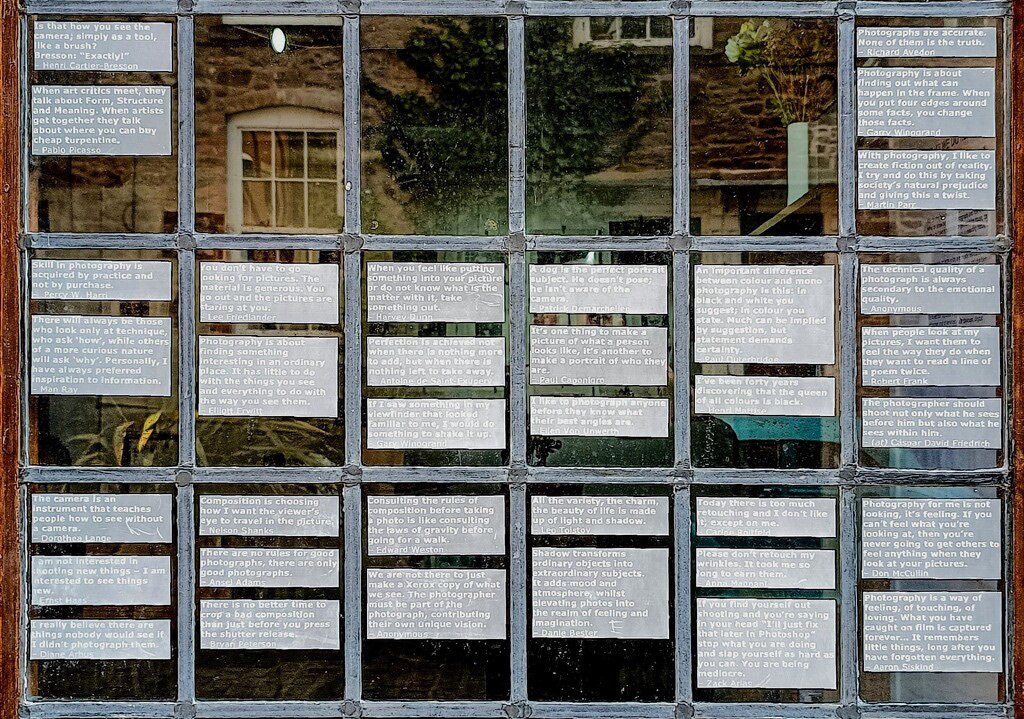 Is that how you see the
camera; simply as a tool,
like a brush?
Bresson: "Exactly!"
- Henri Cartier-Bresson
When art critics meet, they
talk about Form, Structure
and Meaning. When artists
get together they talk
about where you can buy
cheap turpentine.
- Pablo Picasso
Photographs are accurate.
None of them is the truth.
- Richard Avedon
Photography is about
finding out what can
happen in the frame. When
you put four edges around
some facts, you change
those facts.
- Garry Winogrand
With photography, I like to
create fiction out of reality.
I try and do this by taking
society's natural prejudice
and giving this a twist.
- Martin Parr
Skill in photography is
acquired by practice and
not by purchase.
- Percy W. Harris
There will always be those
who look only at technique,
who ask 'how', while others
of a more curious nature
will ask 'why'. Personally, I
have always preferred
inspiration to information.
- Man Ray
You don't have to go
looking for pictures. The
material is generous. You
go out and the pictures are
staring at you.
- Lee Friedlander
Photography is about
finding something
interesting in an ordinary
place. It has little to do
with the things you see
and everything to do with
the way you see them.
- Elliott Erwitt
When you feel like putting
something into your picture
or do not know what is the
matter with it, take
something out.
- Harvey Dunn
Perfection is achieved not
when there is nothing more
to add, but when there is
nothing left to take away.
- Antoine de Saint Exupery
If I saw something in my
viewfinder that looked
familiar to me, I would do
something to shake it up.
- Garry Winogrand
A dog is the perfect portrait
subject. He doesn't pose;
he isn't aware of the
camera.
- Patrick Demarchelier
It's one thing to make a
picture of what a person
looks like, it's another to
make a portrait of who they
are.
- Paul Caponigro
I like to photograph anyone
before they know what
their best angles are.
- Ellen Von Unwerth
An important difference
between colour and mono
photography is this: in
black and white you
suggest; in colour you
state. Much can be implied
by suggestion, but
statement demands
certainty.
I've been forty years
discovering that the queen
of all colours is black.
- Henri Matisse
The technical quality of a
photograph is always
secondary to the emotional
quality.
- Anonymous
When people look at my
pictures, I want them to
feel the way they do when
they want to read a line of
a poem twice.
- Robert Frank
The photographer should
shoot not only what he sees
before him but also what he
sees within him.
- (af) Caspar David Friedrich
The camera is an
instrument that teaches
people how to see without
a camera.
- Dorothea Lange
I am not interested in
shooting new things – I am
interested to see things
new.
- Ernst Haas
I really believe there are
things nobody would see if
I didn't photograph them.
- Diane Arbus
Composition is choosing
how I want the viewer's
eye to travel in the picture.
- Nelson Shanks
There are no rules for good
photographs, there are only
good photographs.
- Ansel Adams
There is no better time to
crop a bad composition
than just before you press
the shutter release.
- Bryan Peterson
Consulting the rules of
composition before taking
a photo is like consulting
the laws of gravity before
going for a walk.
- Edward Weston
We are not there to just
make a Xerox copy of what
we see. The photographer
must be part of the
photograph, contributing
their own unique vision.
- Anonymous
All the variety, the charm,
the beauty of life is made
up of light and shadow.
- Leo Tolstoy
Shadow transforms
ordinary objects into
extraordinary subjects.
It adds mood and
atmosphere, whilst
elevating photos into
the realm of feeling and
imagination.
- Danie Bester
Today there is too much
retouching and I don't like
it, except on me.
Please don't retouch my
wrinkles. It took me so
long to earn them.
- Anna Magnani
If you find yourself out
shooting and you're saying
in your head "I'll just fix
that later in Photoshop"
stop what you are doing
and slap yourself as hard as
you can. You are being
mediocre.
- Zack Arias
Photography for me is not
looking, it's feeling. If you
can't feel what you're
looking at, then you're
never going to get others to
feel anything when they
look at your pictures.
- Don McCullin
Photography is a way of
feeling, of touching, of
loving. What you have
caught on film is captured
forever... It remembers
little things, long after you
have forgotten everything.
- Aaron Siskind